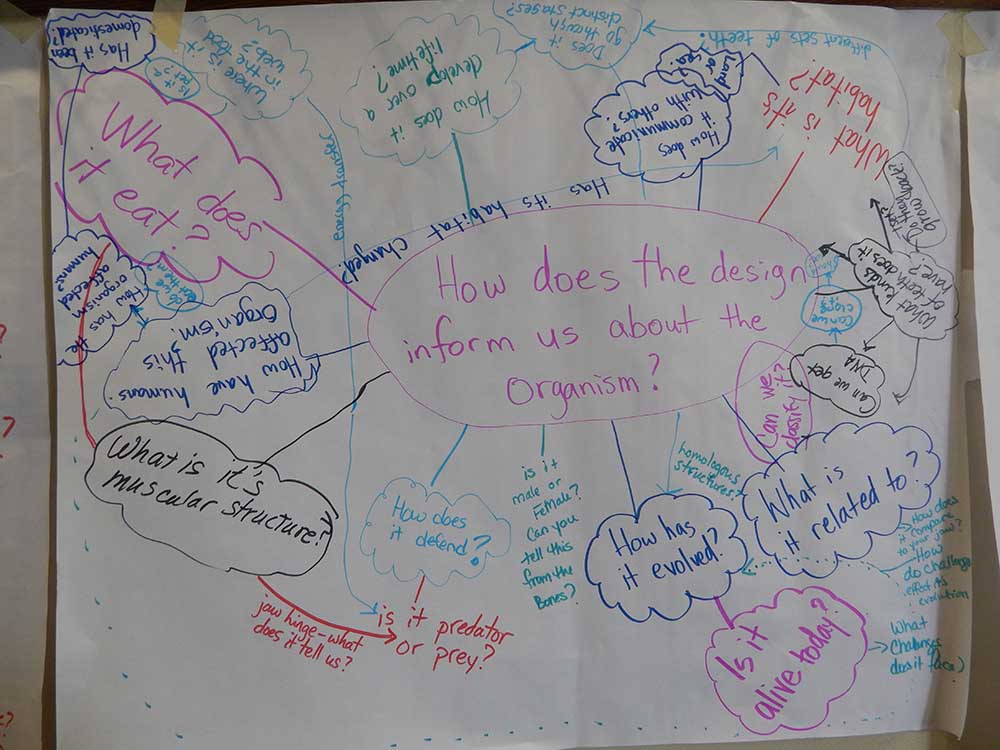 Has it been
domesticated?
Is it a
pet?
Where is it
in the food
web?
How does it
develop over a
lifetime?
Does it
go through
distinct stages?
different sets of teeth?
Land
or
Sea?
How does
it communicate
with others?
What is it's
habitat?
What does
it eat?
energy transfer
Has its habitat changed?
How has the
organism
affected
humans?
do we
eat them?
How have humans
affected this
organism.
How does the design
inform us about the
Organism?
What kinds
of teeth does it
have?
Do they
grow back?
Can we
clone
Can we get
DNA
Can we
classify it?
What is it's
muscular structure?
How does
it defend?
is it
male or
Female?
Can you
tell this
from the
Bones?
homologous
structures?
How has
it evolved?
What is
it related to?
How does
it compare
to your jaw?
How
do challenges
effect its
evolution
jaw hinge-what
does it tell us?
is it predator
or prey?
Is it
alive today?
What
Challenges
does it face)